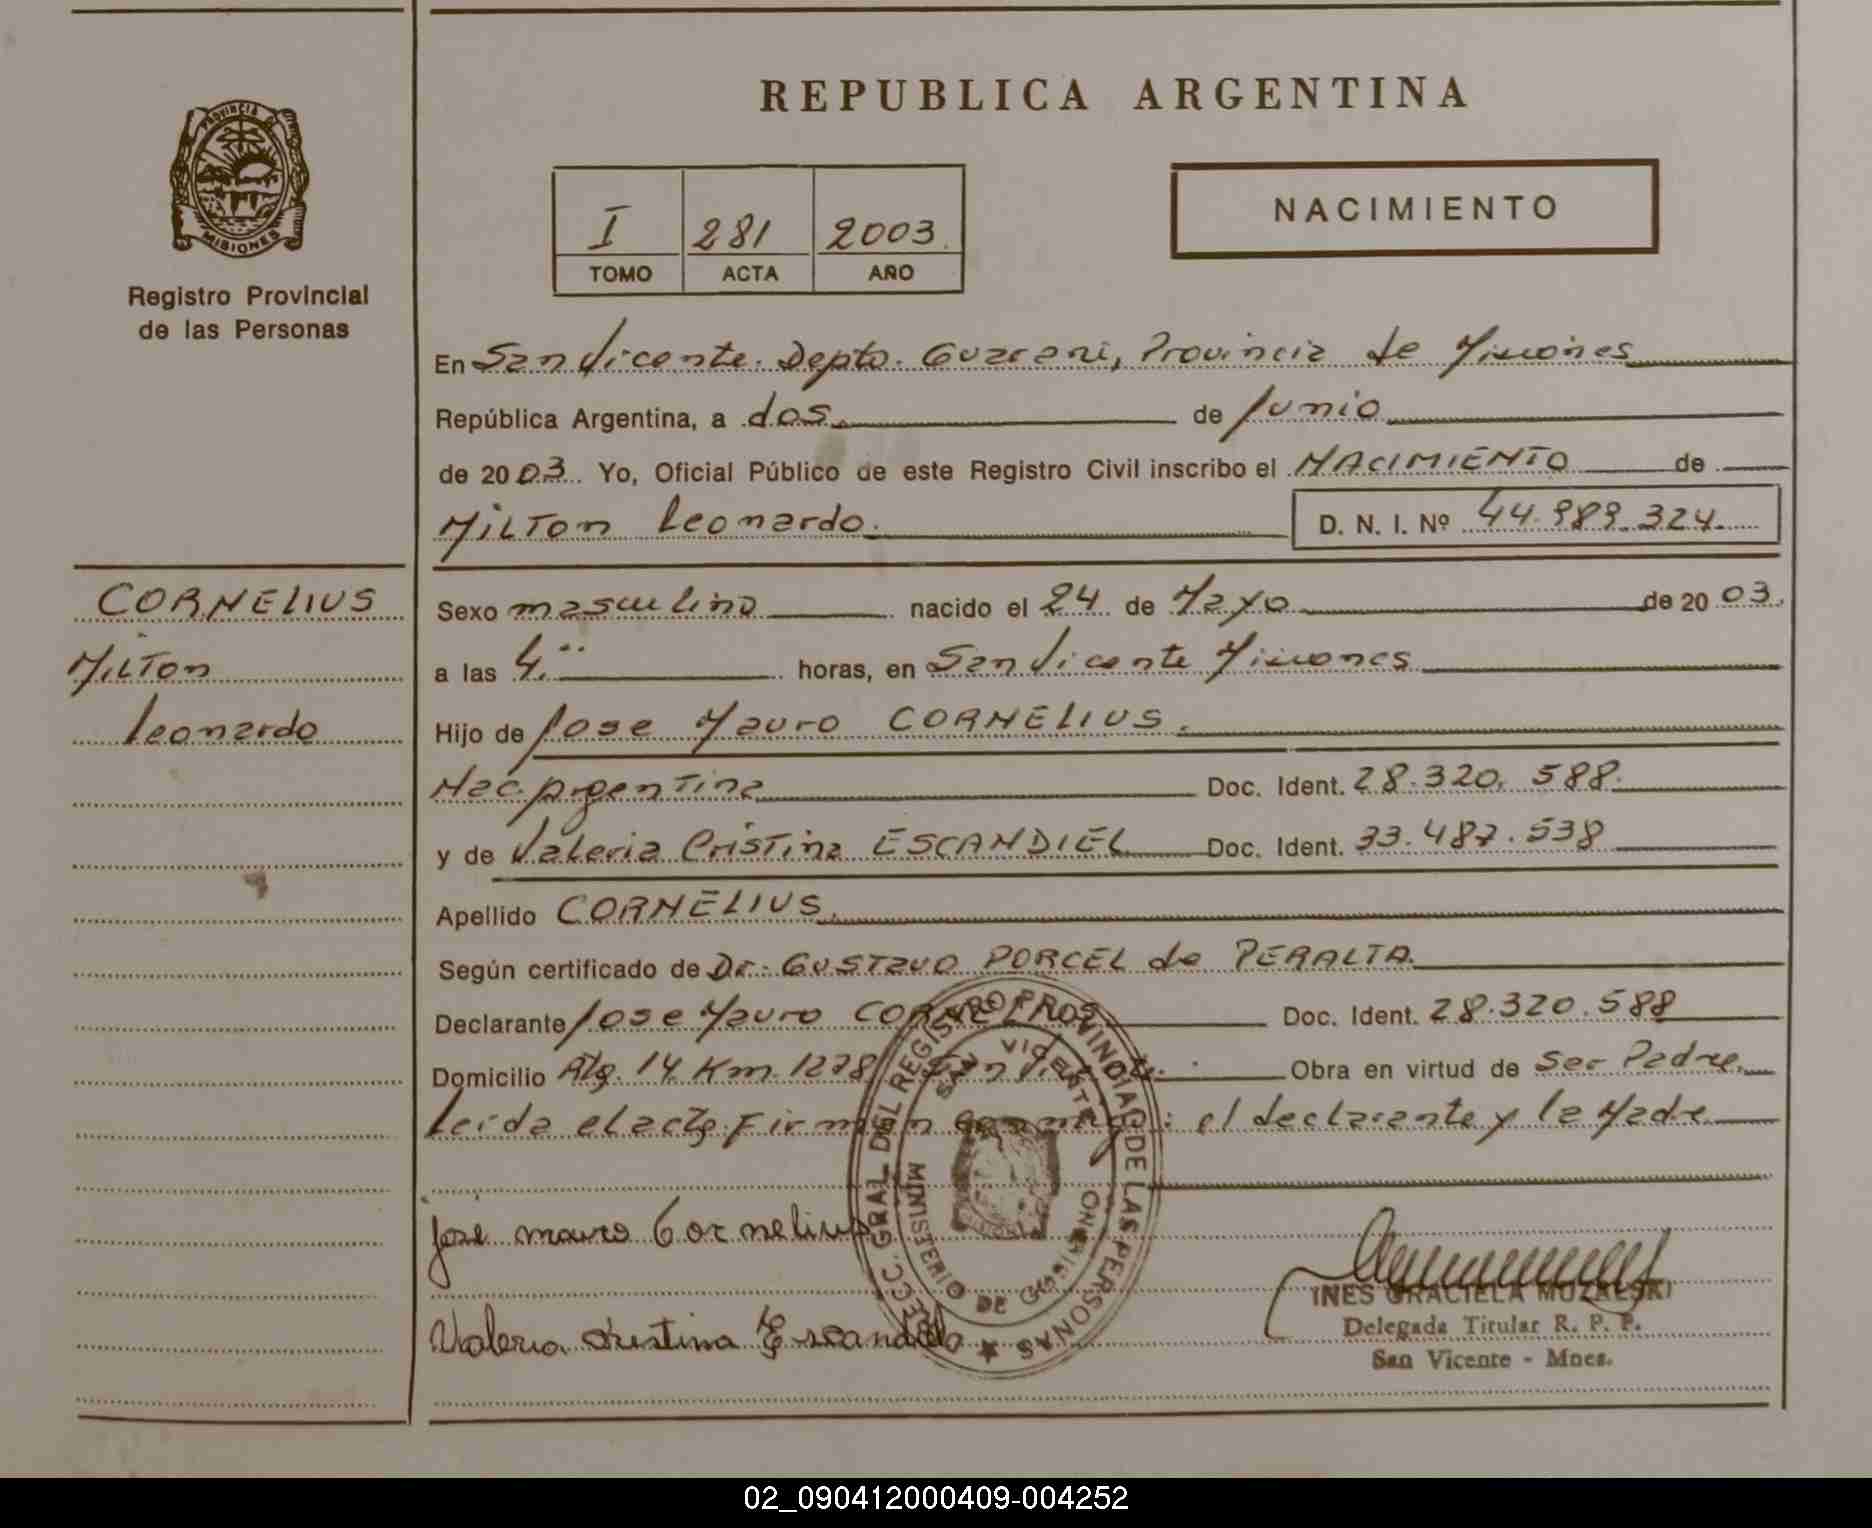 REPUBLICA ARGENTINA
PROVINCIA DE
MISIONES
Registro Provincial
de las Personas
I 281 2003
TOMO ACTA AÑO
NACIMIENTO
En San Vicente. Depto. Guarani, Provincia de Misiones
República Argentina, a dos de Junio
de 2003 Yo, Oficial Público de este Registro Civil inscribo el NACIMIENTO de
Milton Leonardo. D. N. I. Nº 44.989.324
CORNELIUS
Milton
Leonardo
Sexo masculino nacido el 24 de Mayo de 2003.
a las 4. horas, en San Vicente Misiones
Hijo de Jose Mauro CORNELIUS.
Nac. Argentina Doc. Ident. 28.320.588
y de Valeria Cristina ESCANDIEL Doc. Ident. 33.487.538
Apellido CORNELIUS.
Según certificado de Dr. Gustavo PORCEL de PERALTA
Declarante Jose Mauro CORNELIUS Doc. Ident. 28.320.588
Domicilio Km. 1278 San Vicente. Obra en virtud de Ser Padre.
Leida el acta Firman conmigo: el declarante y la Madre
DIRECC. GRAL. DEL REGISTRO PROVINCIAL DE LAS PERSONAS
SAN VICENTE MISIONES
MINISTERIO DE GOBIERNO
josé mauro Cornelius
Valeria Cristina Escandiel
INES GRACIELA MUZALSKI
Delegada Titular R. P. P.
San Vicente - Mnes.
02_090412000409-004252